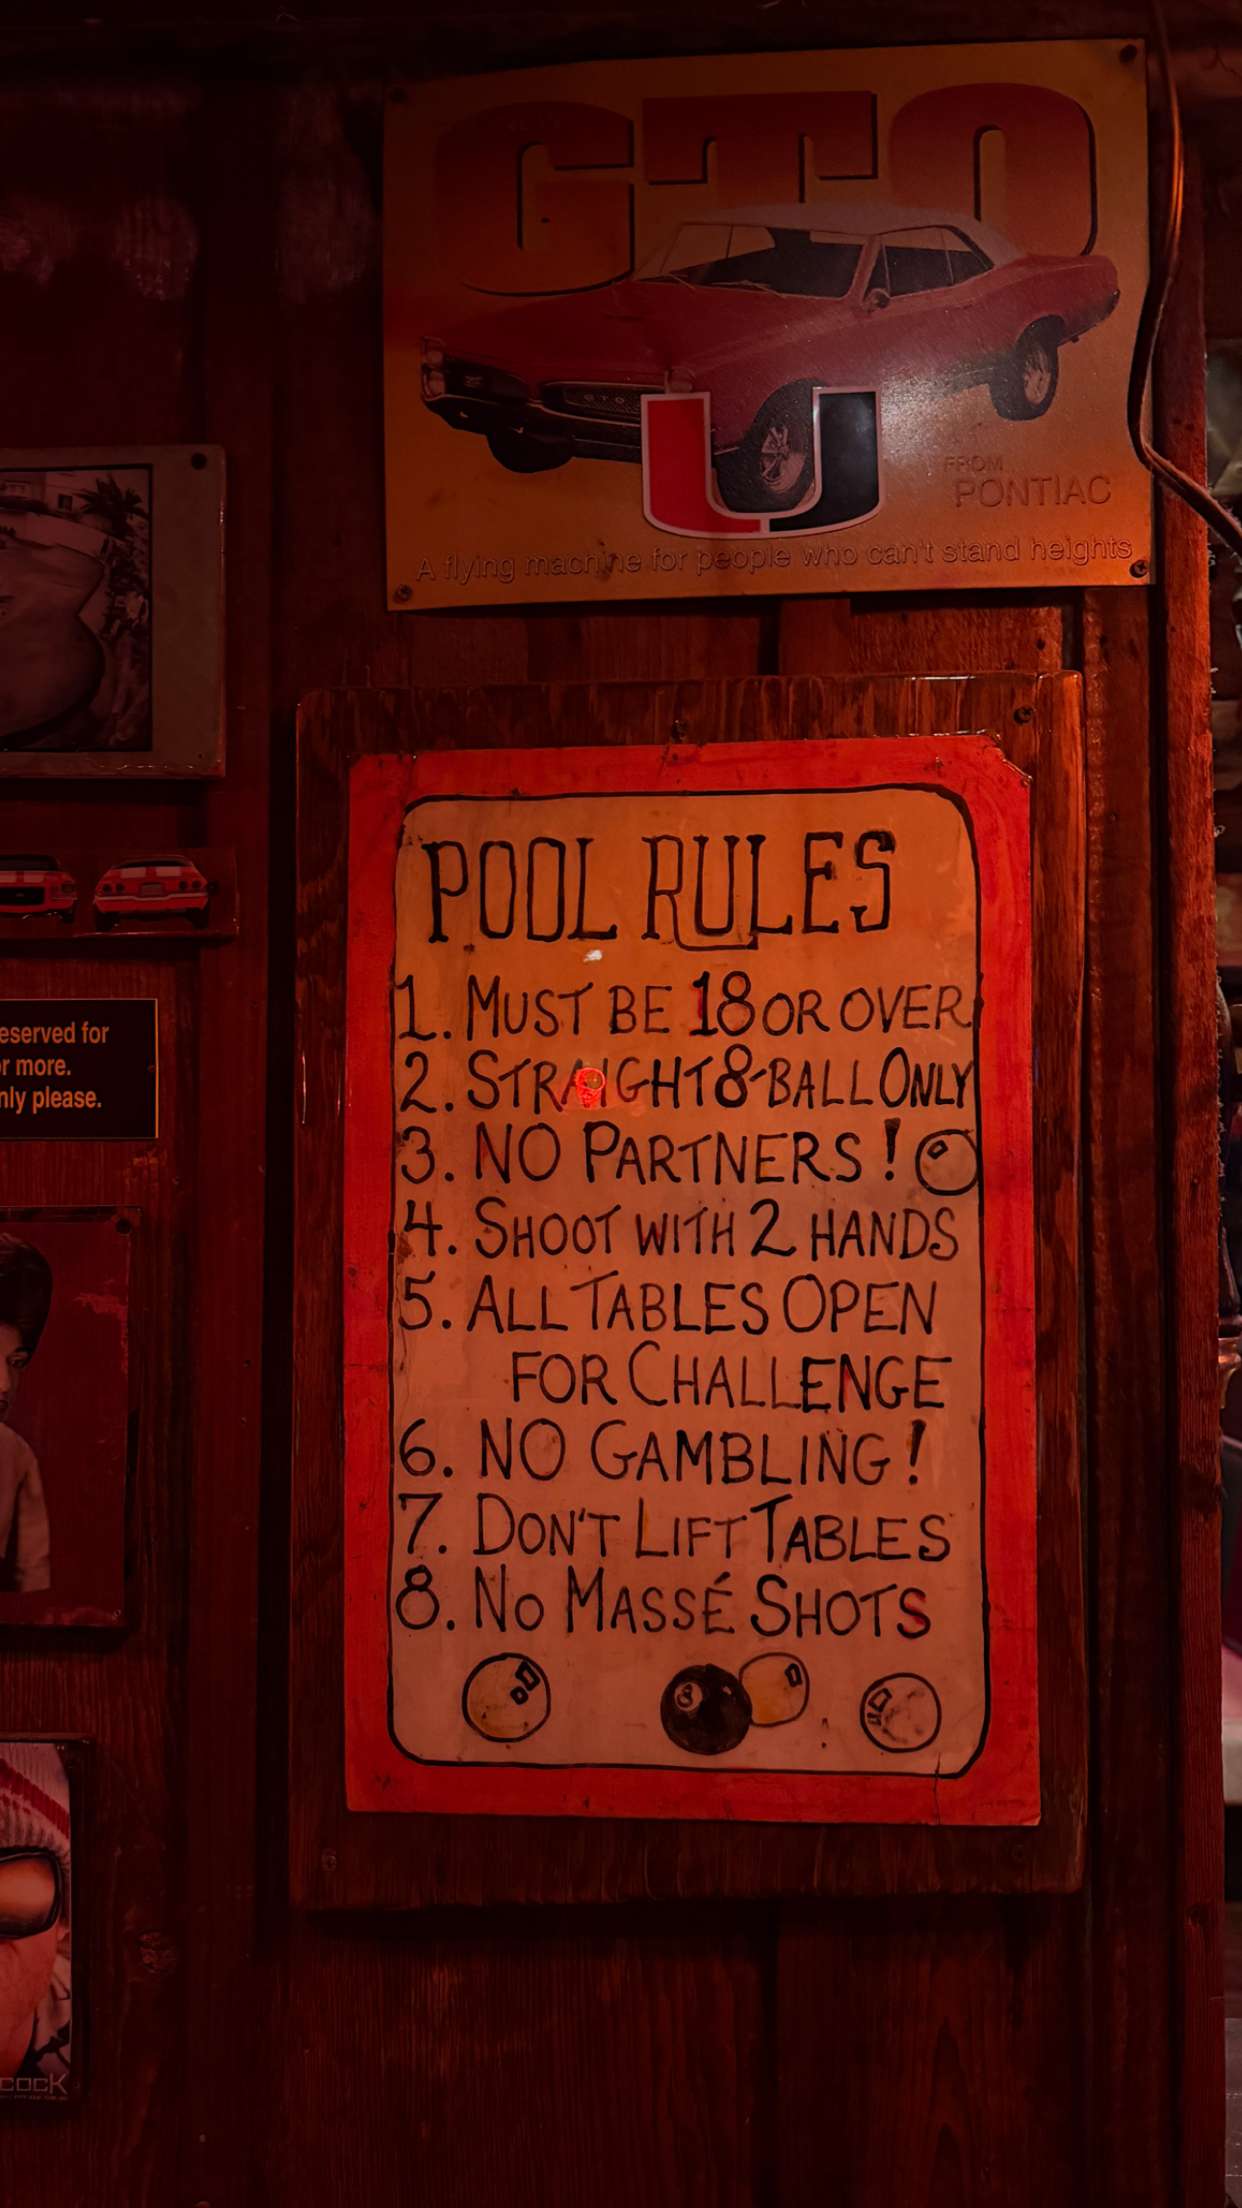 GTO
GTO
U
FROM
PONTIAC
A flying machine for people who can't stand heights
POOL RULES
1. MUST BE 18 OR OVER
2. STRAIGHT 8-BALL ONLY
3. NO PARTNERS!
4. SHOOT WITH 2 HANDS
5. ALL TABLES OPEN
FOR CHALLENGE
6. NO GAMBLING!
7. DON'T LIFT TABLES
8. NO MASSÉ SHOTS
8
eserved for
r more.
nly please.
COCK